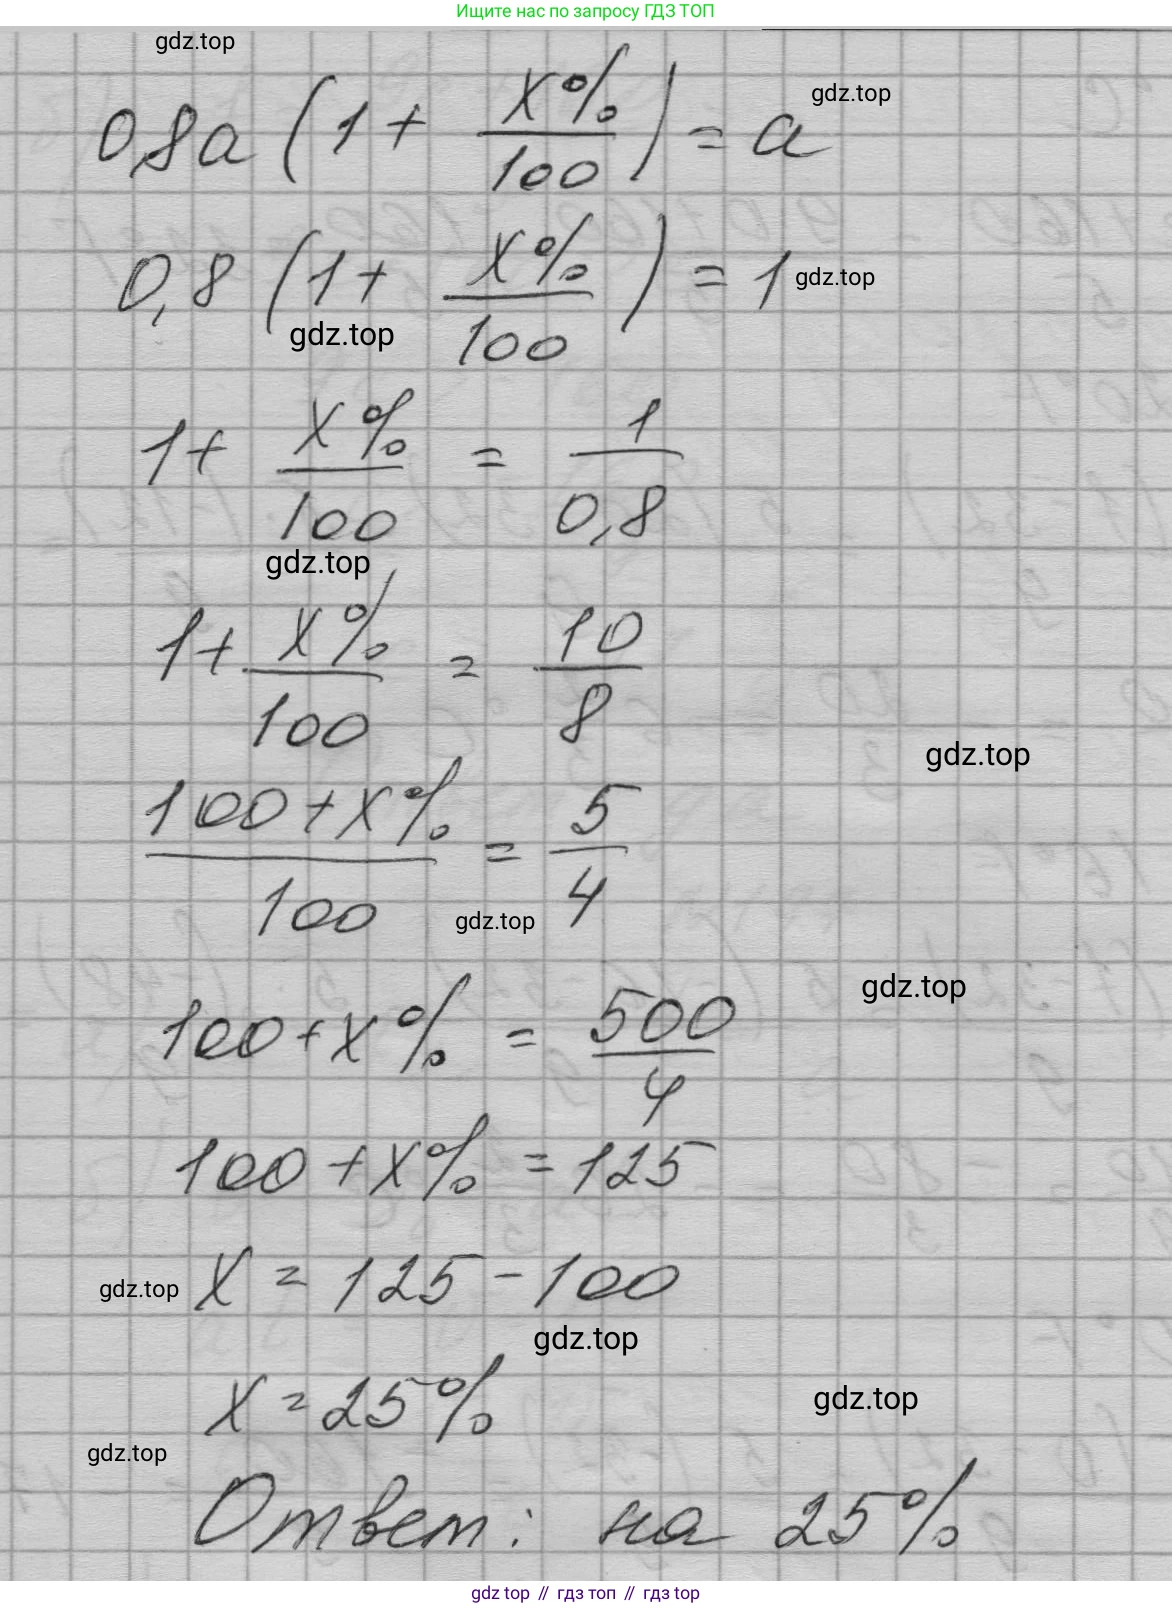 Ищите нас по запросу ГДЗ ТОП
gdz.top
0,8a (1 + x%/100) = a gdz.top
0,8 (1 + x%/100) = 1 gdz.top
gdz.top
1 + x%/100 = 1/0,8
gdz.top
1 + x%/100 = 10/8
gdz.top
100 + x%/100 = 5/4
gdz.top
gdz.top
100 + x% = 500/4
100 + x% = 125
gdz.top x = 125 - 100
gdz.top
x = 25%
gdz.top
gdz.top
Ответ: на 25%
gdz top // гдз топ // гдз top